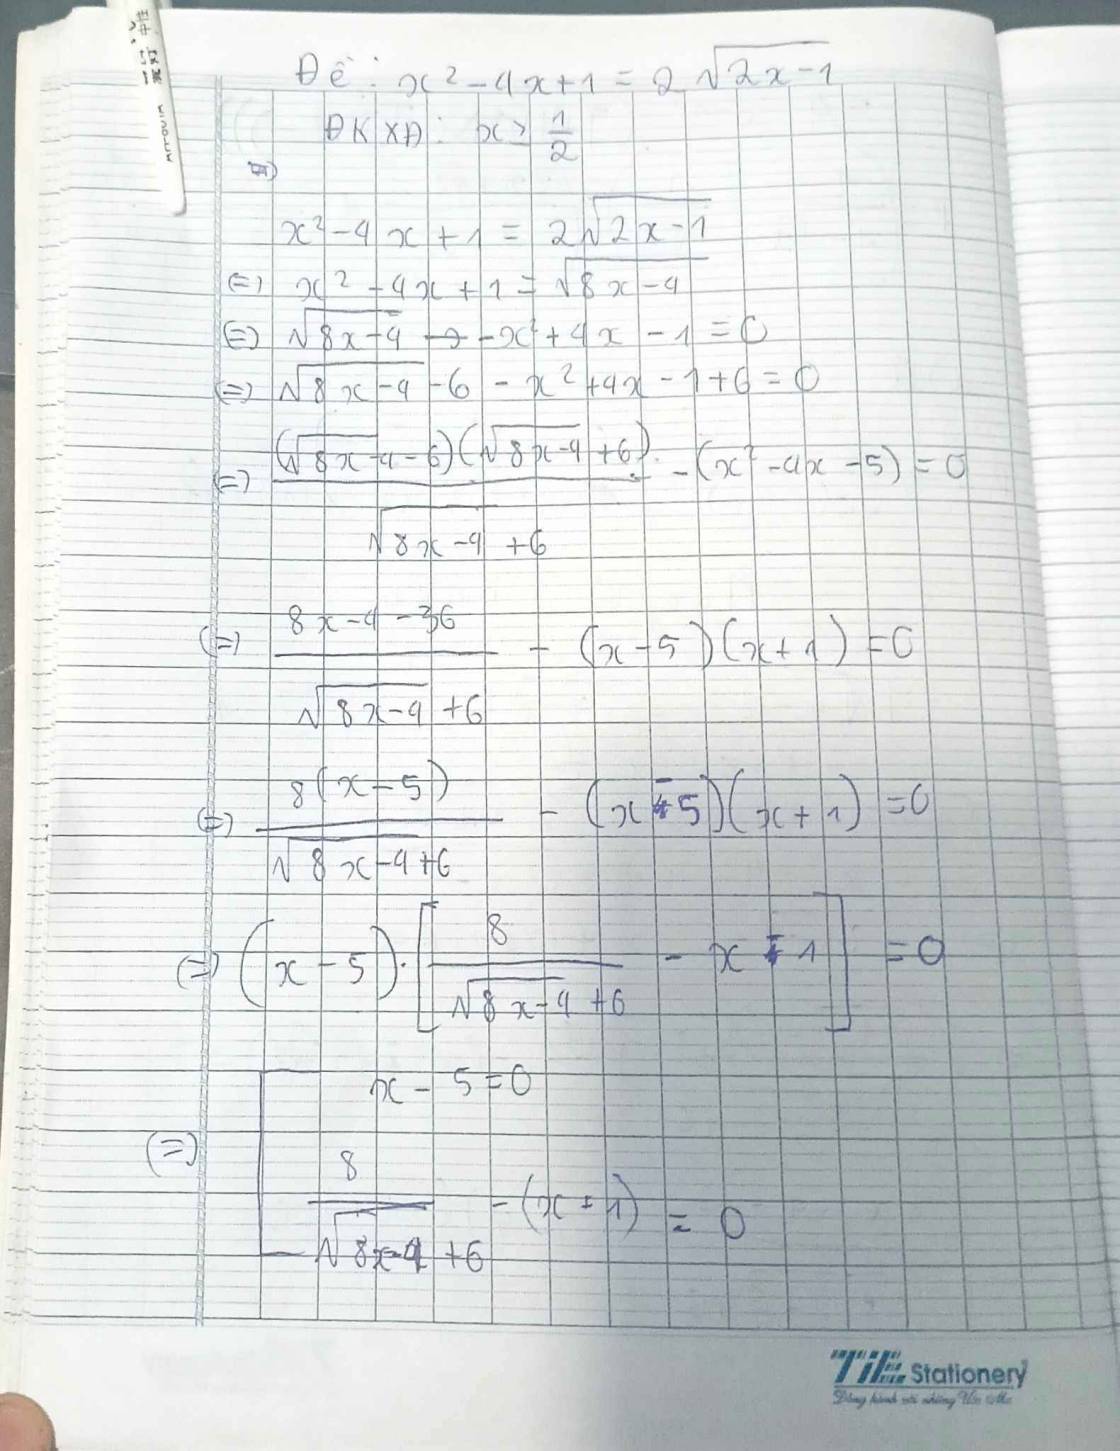 Đề: x² - 4x + 1 = 2√(2x-1)
ĐKXĐ: x ≥ 1/2
x² - 4x + 1 = 2√(2x-1)
(=) x² - 4x + 1 = √(8x-4)
(=) √(8x-4) - x² + 4x - 1 = 0
(=) √(8x-4) - 6 - x² + 4x - 1 + 6 = 0
(=) (√(8x-4) - 6)(√(8x-4) + 6) / (√(8x-4) + 6) - (x² - 4x - 5) = 0
(=) (8x - 4 - 36) / (√(8x-4) + 6) - (x - 5)(x + 1) = 0
(=) 8(x - 5) / (√(8x-4) + 6) - (x - 5)(x + 1) = 0
(=) (x - 5) · [8 / (√(8x-4) + 6) - x - 1] = 0
(=) [ x - 5 = 0
8 / (√(8x-4) + 6) - (x + 1) = 0
TiE Stationery